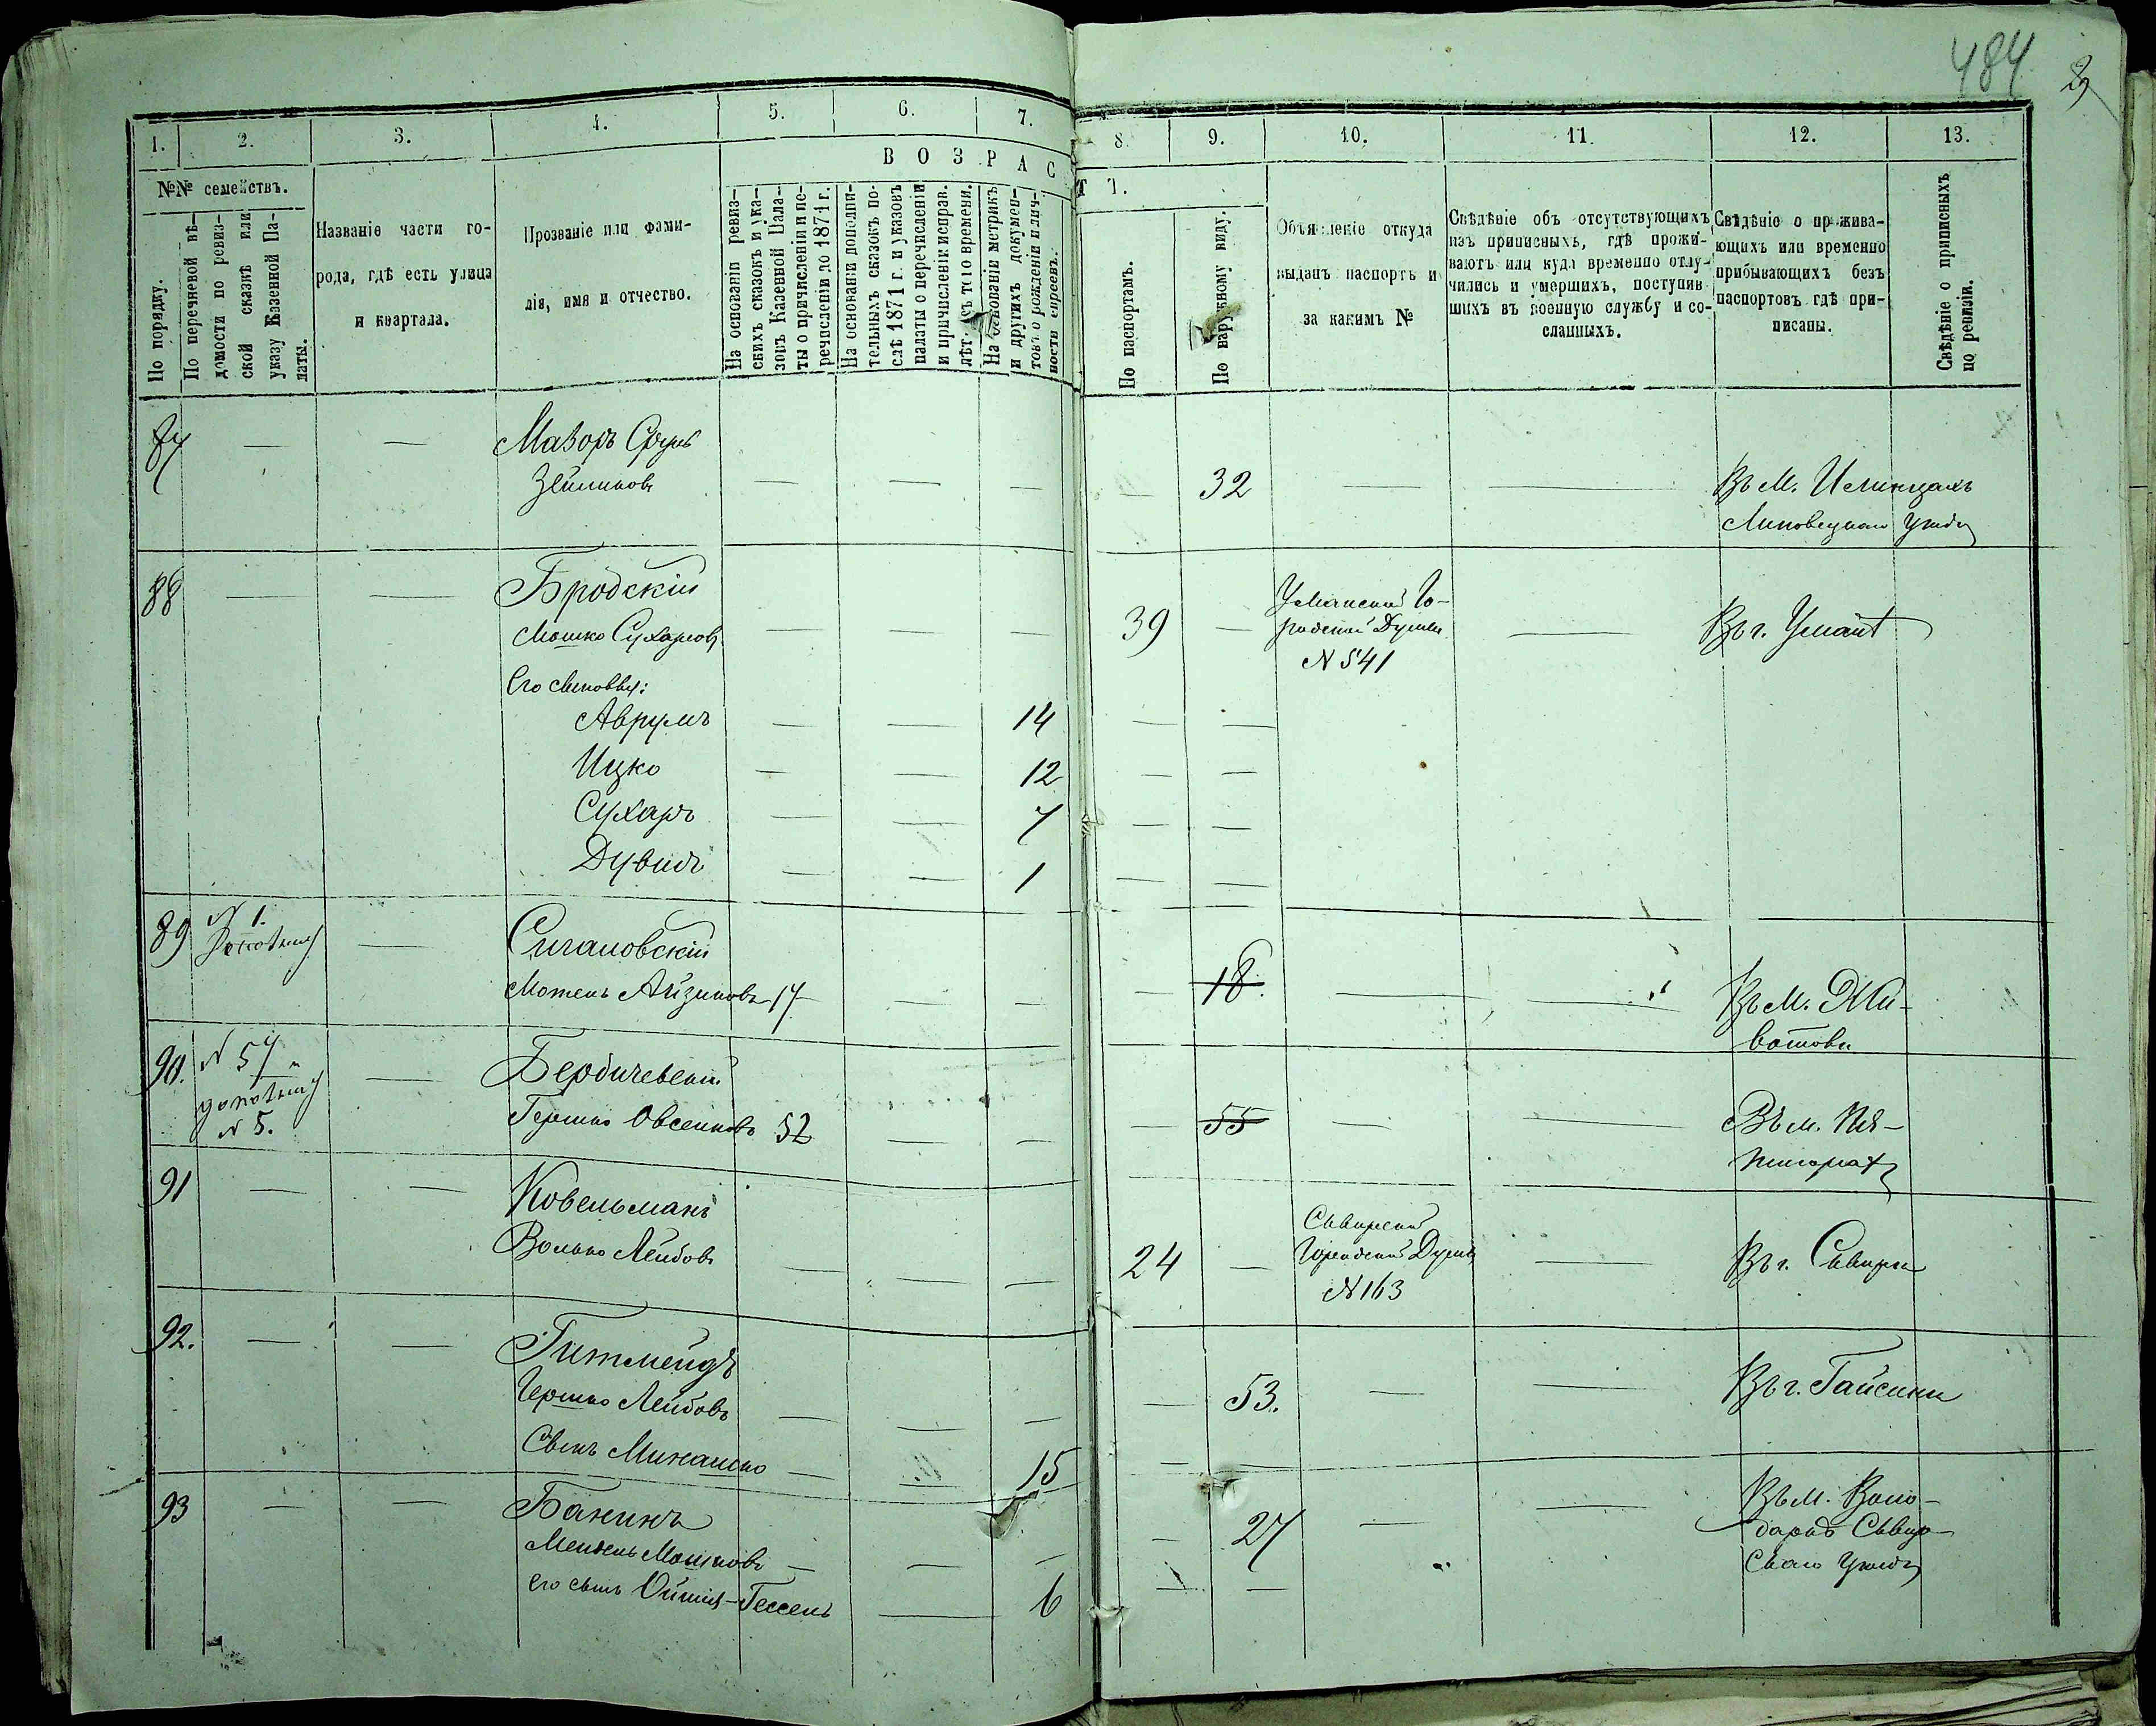 484
1. 2. 3. 4. 5. 6. 7. 8. 9. 10. 11. 12. 13.
ВОЗРАСТ Ъ.
№№ семействъ.
По порядку.
По перечневой вѣ-
домости по ревиз-
ской сказкѣ или
указу Казенной Па-
латы.
Названіе части го-
рода, гдѣ есть улица
и квартала.
Прозваніе или фами-
лія, имя и отчество.
На основаніи ревиз-
скихъ сказокъ и ука-
зовъ Казенной Пала-
ты о причисленіи и пе-
речисленіи до 1871 г.
На основаніи дополни-
тельныхъ сказокъ по-
слѣ 1871 г. и указовъ
палаты о перечисленіи
и причисленіи исправ.
лѣтъ съ того времени.
На основаніе метрикъ
и другихъ докумен-
товъ о рожденіи и лич-
ности евреевъ.
По паспортамъ.
По наружному виду.
Объявленіе откуда
выданъ паспортъ и
за какимъ №
Свѣдѣніе объ отсутствующихъ
изъ приписныхъ, гдѣ прожи-
ваютъ или куда временно отлу-
чились и умершихъ, поступив
шихъ въ военную службу и со-
сланныхъ.
Свѣдѣніе о прожива-
ющихъ или временно
прибывающихъ безъ
паспортовъ гдѣ при-
писаны.
Свѣдѣніе о приписныхъ
по ревизіи.
87 — — Мазоръ Сруль
Зейликовъ — — — — 32 — — Въ м. Илинцахъ
Липовецкаго Уѣзда
88 — — Бродскій
Мошко Сухаровъ — — — 39 — Уманской Го-
родской Думы — Въ г. Умани
N 541
Его сыновья:
Аврумъ — — 14 — —
Ицко — — 12 — —
Сухаръ — — 7 — —
Дувидъ — — 1 — —
89 N 1. —
Сигаловскій
Мотель Айзиковъ 17 — — — 18. — — Въ м. Жи-
вотовѣ
90. N 57 — Бердичевскій
N 5. Гершко Овсеиовъ 52 — — — 55 — — Въ м. Пя-
тигорахъ
91 — — Ковельманъ
Волько Лейбовъ — — — 24 — Сквирской
Городской Думы — Въ г. Сквирѣ
N 163
92. — — Гитмейдъ
Гершко Лейбовъ — — — — 53. — — Въ г. Гайсинѣ
Сынъ Минашко — — 15
93 — — Банинъ
Мендель Мошковъ — — — — 27 — — Въ м. Воло-
даркѣ Сквир-
скаго Уѣзда
его сынъ Ойшія-Гессель — 6 — —